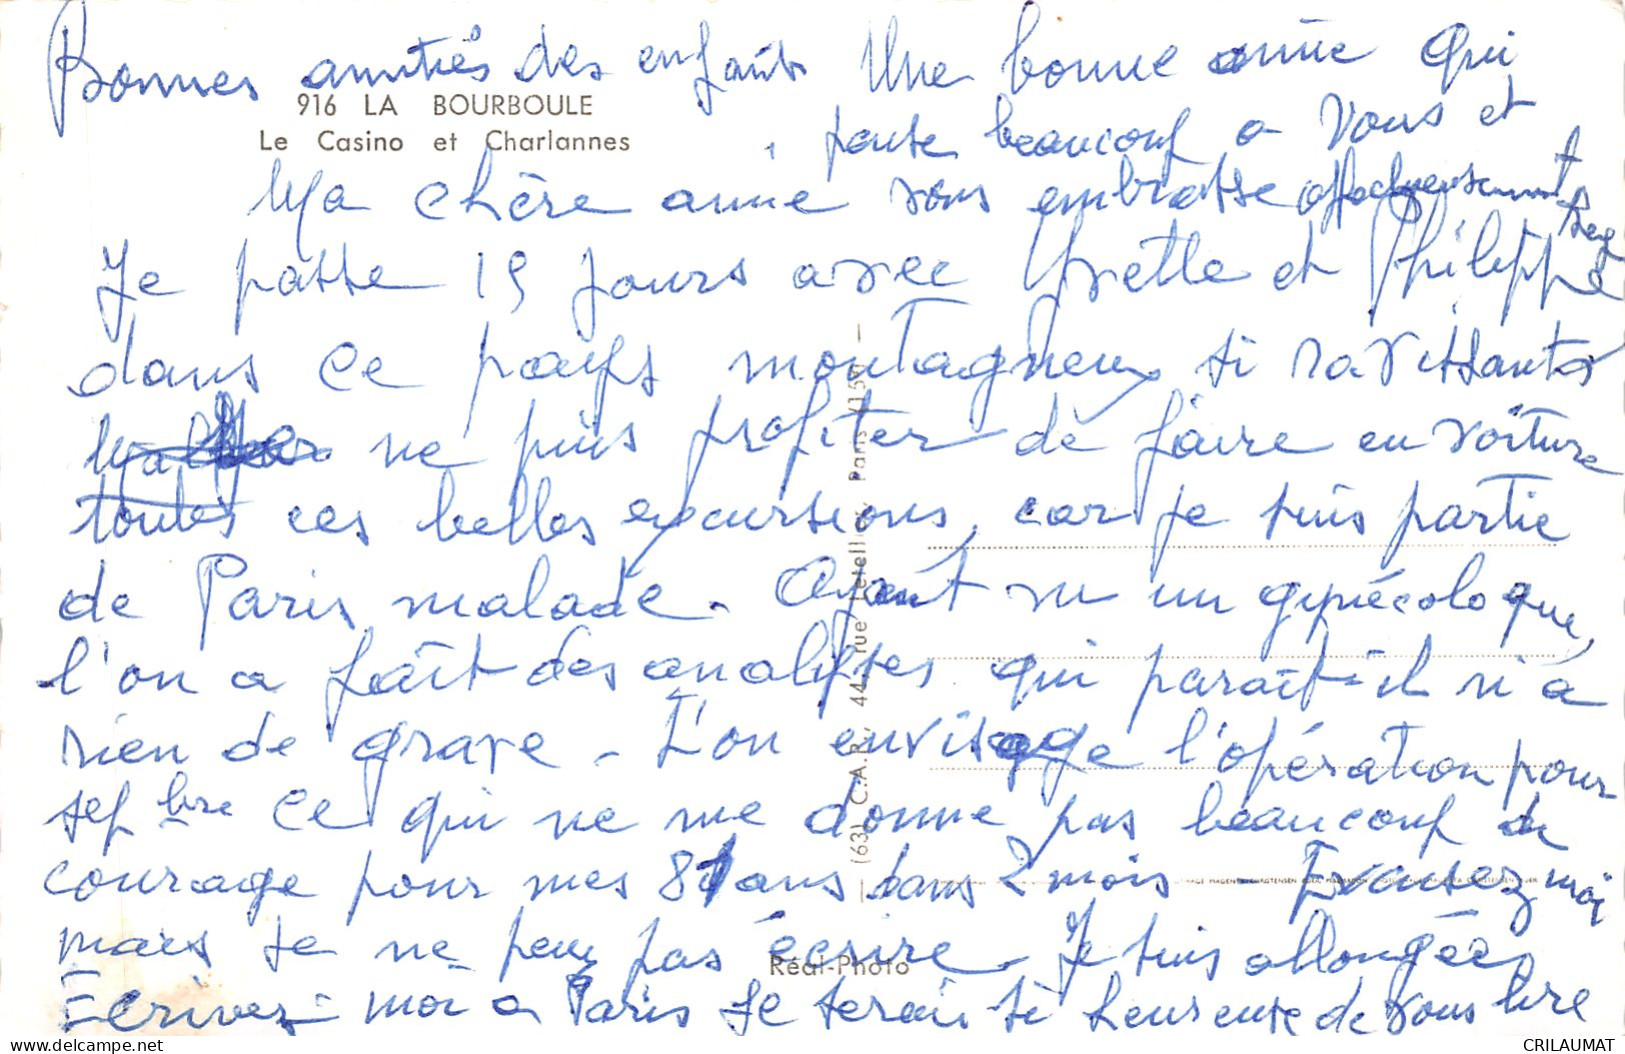 Bonnes amitiés des enfants Une bonne année qui
916 LA BOURBOULE
Le Casino et Charlannes
pense beaucoup a Vous et
Ma chère amie vous embrasse affectueusement
Je passe 15 jours avec Yvette et Philippe
dans ce pays montagneux si ravissants
ne puis profiter de faire en voiture
toutes ces belles excursions, car je suis partie
de Paris malade. Ayant vu un gynécologue,
l'on a fait des analyses qui paraît-il n'a
rien de grave - L'on envisage l'opération pour
sept bre ce qui ne me donne pas beaucoup de
courage pour mes 81 ans dans 2 mois - Excusez moi
mais je ne peux pas écrire - Je suis allongée,
Réal-Photo
Ecrivez-moi a Paris je serais si heureuse de vous lire
(63) C.A.P. 44, rue Letellier, Paris (15e)
CRILAUMAT